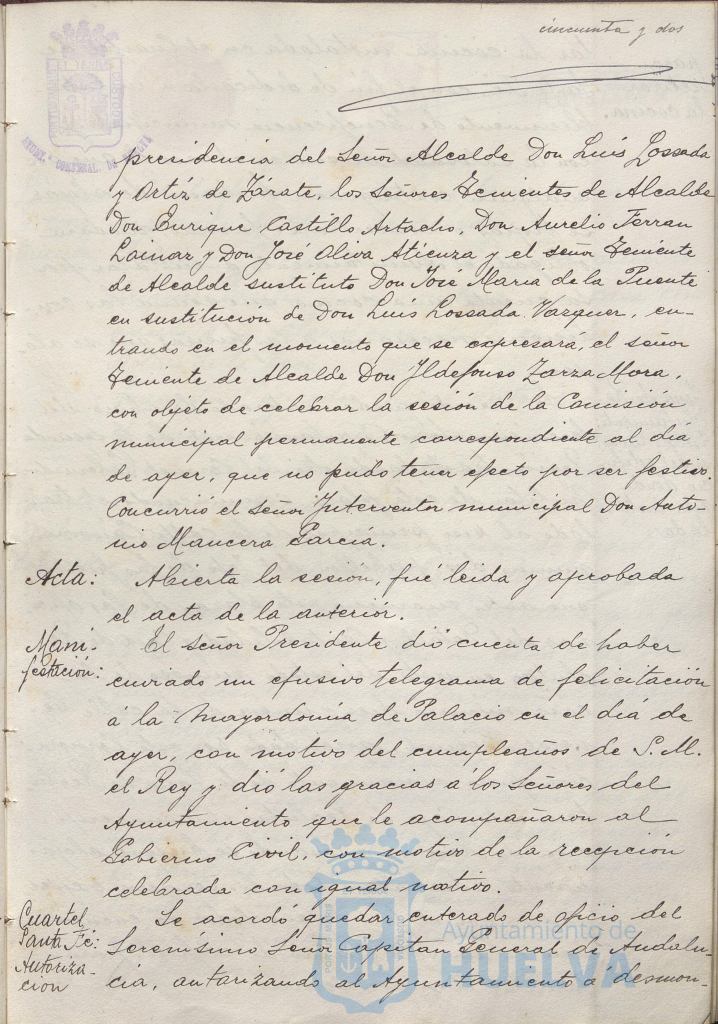 cincuenta y dos
presidencia del Señor Alcalde Don Luis Lossada
y Ortiz de Zárate, los Señores Tenientes de Alcalde
Don Enrique Castillo Artacho, Don Aurelio Ferran
Lainar y Don José Oliva Atienza y el señor Teniente
de Alcalde sustituto Don José Maria de la Puente
en sustitución de Don Luis Lossada Vazquer, en-
trando en el momento que se expresará, el señor
Teniente de Alcalde Don Yldefonso Zarza Mora,
con objeto de celebrar la sesión de la Comisión
municipal permanente correspondiente al dia
de ayer, que no pudo tener efecto por ser festivo.
Concurrió el Señor Ynterventor municipal Don Anto-
nio Mancera Garcia.
Acta: Abierta la sesión, fué leida y aprobada
el acta de la anterior.
Mani-
festación:
El señor Presidente dió cuenta de haber
enviado un efusivo telegrama de felicitación
á la Mayordomia de Palacio en el dia de
ayer, con motivo del cumpleaños de S. M.
el Rey y dió las gracias á los Señores del
Ayuntamiento que le acompañaron al
Gobierno Civil, con motivo de la recepción
celebrada con igual motivo.
Cuartel
Santa Fé:
Autoriza-
cion
Se acordó quedar enterado de oficio del
Serenísimo Señor Capitan General de Andalu-
cia, autorizando al Ayuntamiento á desmon-
Ayuntamiento de
HUELVA